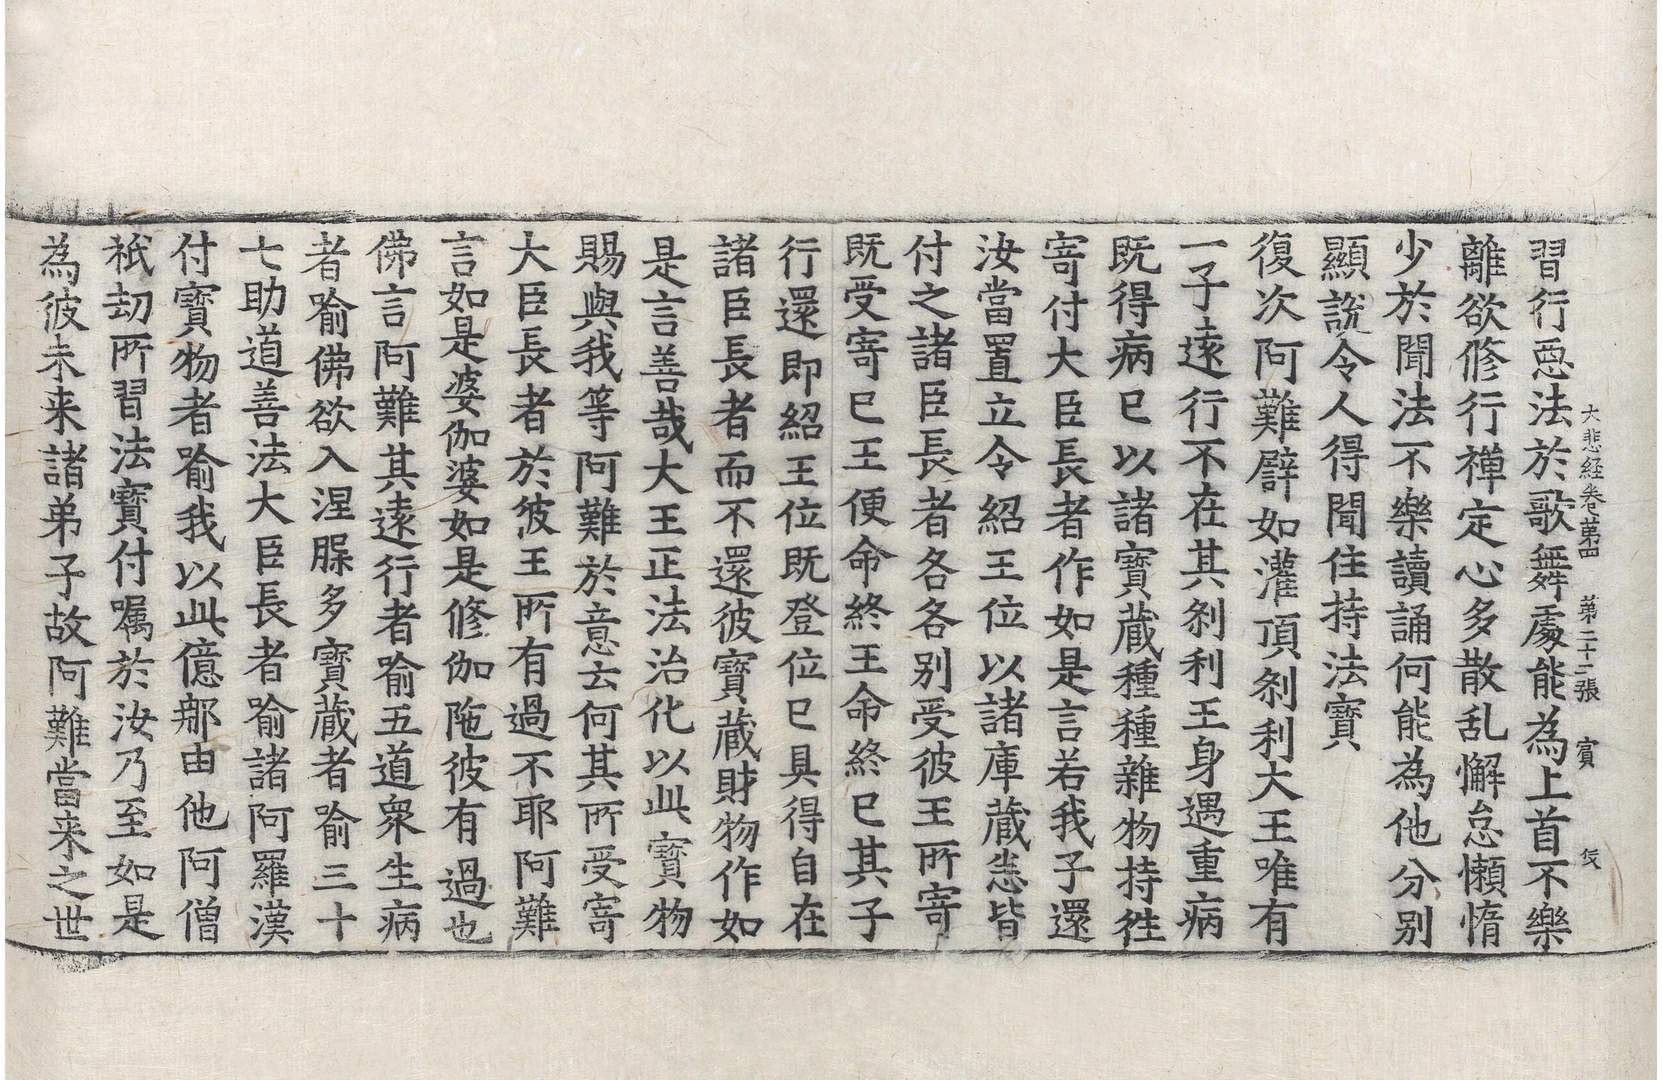 大悲経卷第四 第二十二張 賓
習行惡法於歌舞處能為上首不樂
離欲修行禪定心多散乱懈怠懶惰
少於聞法不樂讀誦何能為他分别
顯說令人得聞住持法寶
復次阿難譬如灌頂刹利大王唯有
一子遠行不在其刹利王身遇重病
既得病已以諸寶藏種種雜物持徃
寄付大臣長者作如是言若我子還
汝當置立令紹王位以諸庫藏悉皆
付之諸臣長者各各别受彼王所寄
既受寄已王便命終王命終已其子
行還即紹王位既登位已具得自在
諸臣長者而不還彼寶藏財物作如
是言善哉大王正法治化以此寶物
賜與我等阿難於意云何其所受寄
大臣長者於彼王所有過不耶阿難
言如是婆伽婆如是修伽陁彼有過也
佛言阿難其遠行者喻五道衆生病
者喻佛欲入涅槃多寶藏者喻三十
七助道善法大臣長者喻諸阿羅漢
付寶物者喻我以此億那由他阿僧
祇劫所習法寶付囑於汝乃至如是
為彼未来諸弟子故阿難當来之世